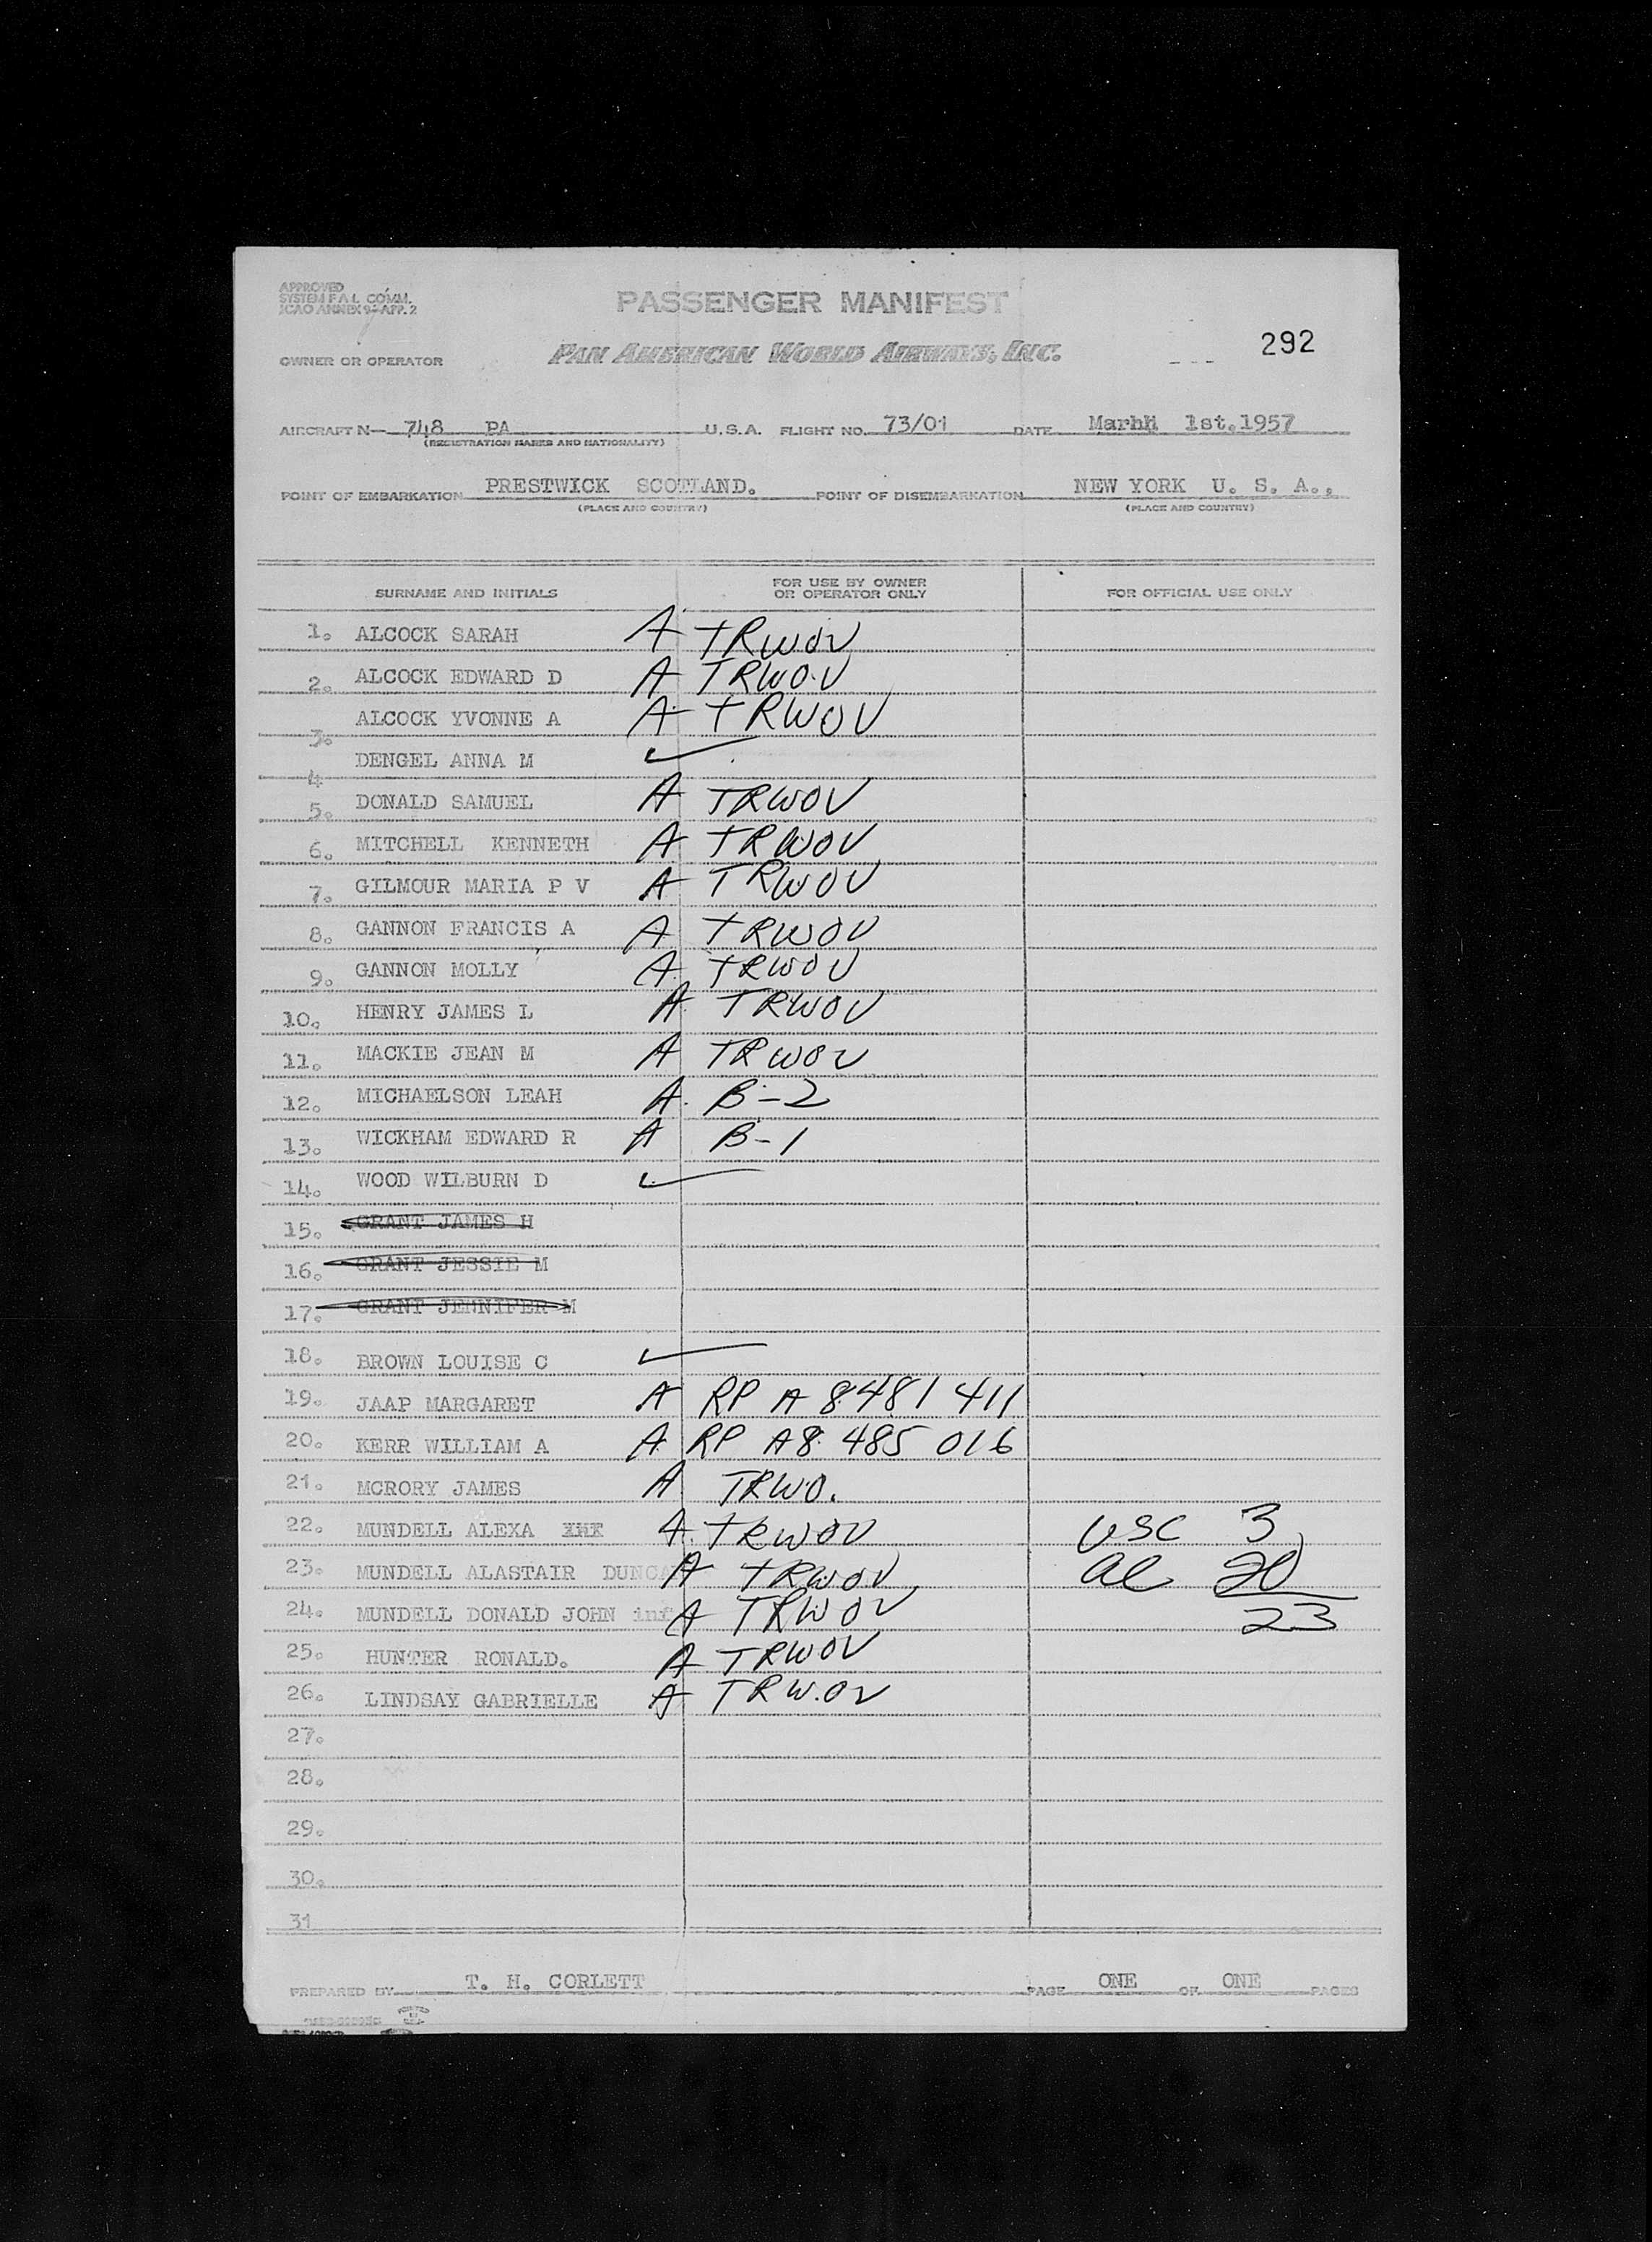 APPROVED
SYSTEM F.A.L. COMM.
ICAO ANNEX 9-APP. 2
PASSENGER MANIFEST
OWNER OR OPERATOR PAN AMERICAN WORLD AIRWAYS, INC. 292
AIRCRAFT N- 748 PA U.S.A. FLIGHT NO. 73/01 DATE Marhh 1st.1957
(REGISTRATION MARKS AND NATIONALITY)
POINT OF EMBARKATION PRESTWICK SCOTLAND. POINT OF DISEMBARKATION NEW YORK U. S. A.,
(PLACE AND COUNTRY) (PLACE AND COUNTRY)
SURNAME AND INITIALS FOR USE BY OWNER OR OPERATOR ONLY FOR OFFICIAL USE ONLY
1. ALCOCK SARAH A TRWOV
2. ALCOCK EDWARD D A TRWOV
3. ALCOCK YVONNE A A TRWOV
4 DENGEL ANNA M ✓
5. DONALD SAMUEL A TRWOV
6. MITCHELL KENNETH A TRWOV
7. GILMOUR MARIA P V A TRWOV
8. GANNON FRANCIS A A TRWOV
9. GANNON MOLLY A TRWOV
10. HENRY JAMES L A TRWOV
11. MACKIE JEAN M A TRWOV
12. MICHAELSON LEAH A B-2
13. WICKHAM EDWARD R A B-1
14. WOOD WILBURN D ✓
15. GRANT JAMES H
16. GRANT JESSIE M
17. GRANT JENNIFER M
18. BROWN LOUISE C ✓
19. JAAP MARGARET A RP A 8481 411
20. KERR WILLIAM A A RP A8 485 016
21. MCRORY JAMES A TRWO.
22. MUNDELL ALEXA A TRWOV USC 3
23. MUNDELL ALASTAIR DUNCA A TRWOV al 20
24. MUNDELL DONALD JOHN inf A TRWOV 23
25. HUNTER RONALD. A TRWOV
26. LINDSAY GABRIELLE A TRW.OV
27.
28.
29.
30.
31
PREPARED BY T. H. CORLETT PAGE ONE OF ONE PAGES